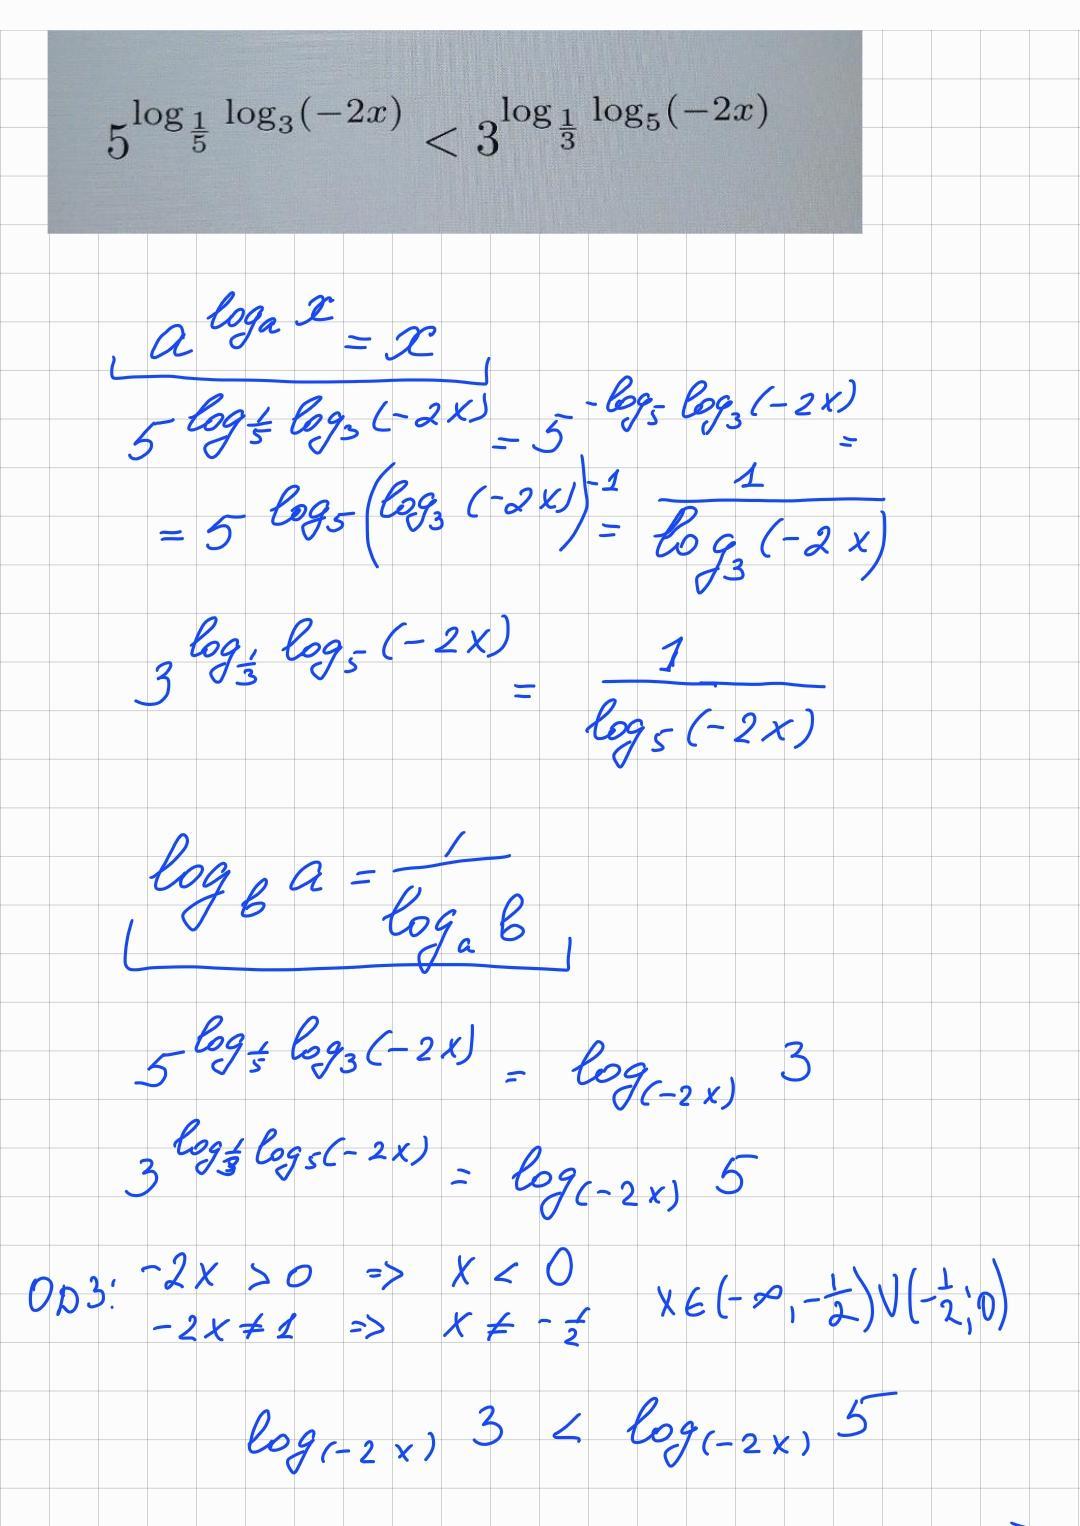 5^{log_{1/5} log_3(−2x)} < 3^{log_{1/3} log_5(−2x)}
a^{log_a x} = x
5^{log_{1/5} log_3(-2x)} = 5^{-log_5 log_3(-2x)} =
= 5^{log_5 (log_3 (-2x))^{-1}} = 1/log_3(-2x)
3^{log_{1/3} log_5(-2x)} = 1/log_5(-2x)
log_b a = 1/log_a b
5^{log_{1/5} log_3(-2x)} = log_{(-2x)} 3
3^{log_{1/3} log_5(-2x)} = log_{(-2x)} 5
ОДЗ: -2x > 0 => x < 0 x ∈ (-∞, -1/2) ∪ (-1/2; 0)
-2x ≠ 1 => x ≠ -1/2
log_{(-2x)} 3 < log_{(-2x)} 5